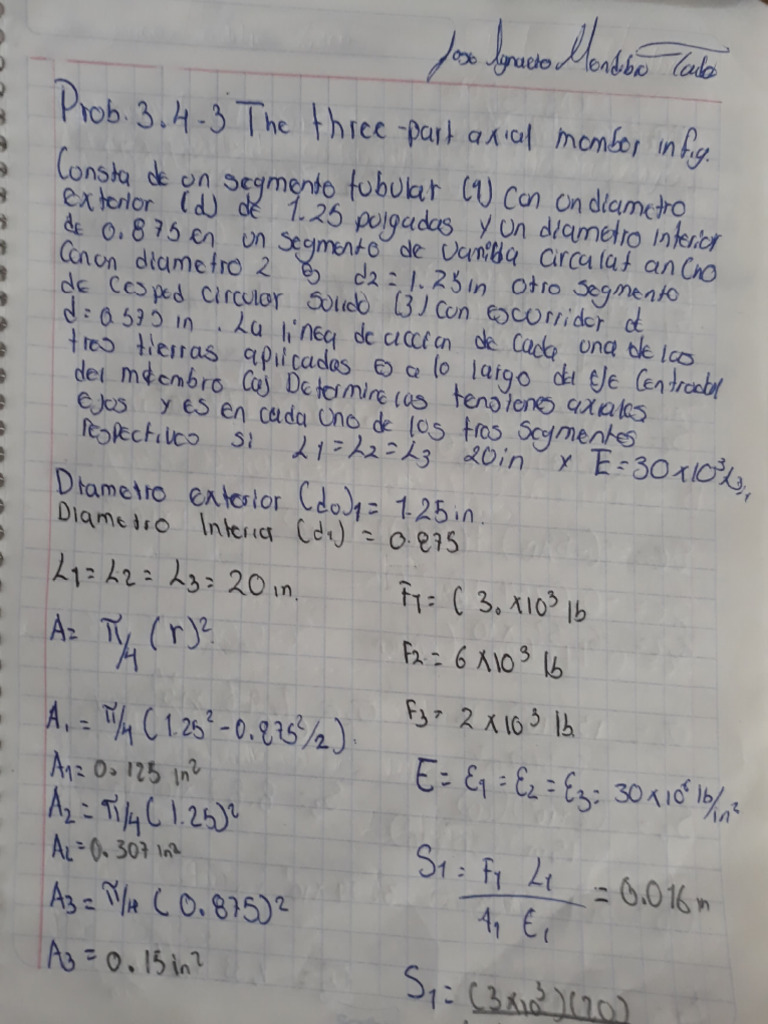 Jose Ignacio Mondibro Tlado
Prob. 3.4-3 The three-part axial member in fig.
Consta de un segmento tubular (1) con un diametro
exterior (d) de 1.25 pulgadas y un diametro interior
de 0.875 en un segmento de varilla circular ancho
con un diametro 2 es d2 = 1.25 in otro segmento
de cesped circular solido (3) con escorridor d
d = 0.575 in. La linea de accion de cada una de las
tres tierras aplicadas es a lo largo del eje centroidal
del miembro (a) Determine las tensiones axiales
ejos y es en cada uno de los tres segmentes
respectivos si L1 = L2 = L3 20in x E = 30 x 10³
Diametro exterior (do)1 = 1.25 in.
Diametro Interior (di) = 0.875
L1 = L2 = L3 = 20 in.
A = π/4 (r)².
A1 = π/4 (1.25² - 0.875²/2).
A1 = 0.125 in²
A2 = π/4 (1.25)²
A2 = 0.307 in²
A3 = π/4 (0.875)²
A3 = 0.15 in²
F1 = ( 3. x10³ lb
F2 = 6 x10³ lb
F3 = 2 x 10³ lb
E = E1 = E2 = E3 = 30 x 10⁶ lb/in²
S1 = F1 L1 / A1 E1 = 0.016 in
S1 = (3x10³)(20)